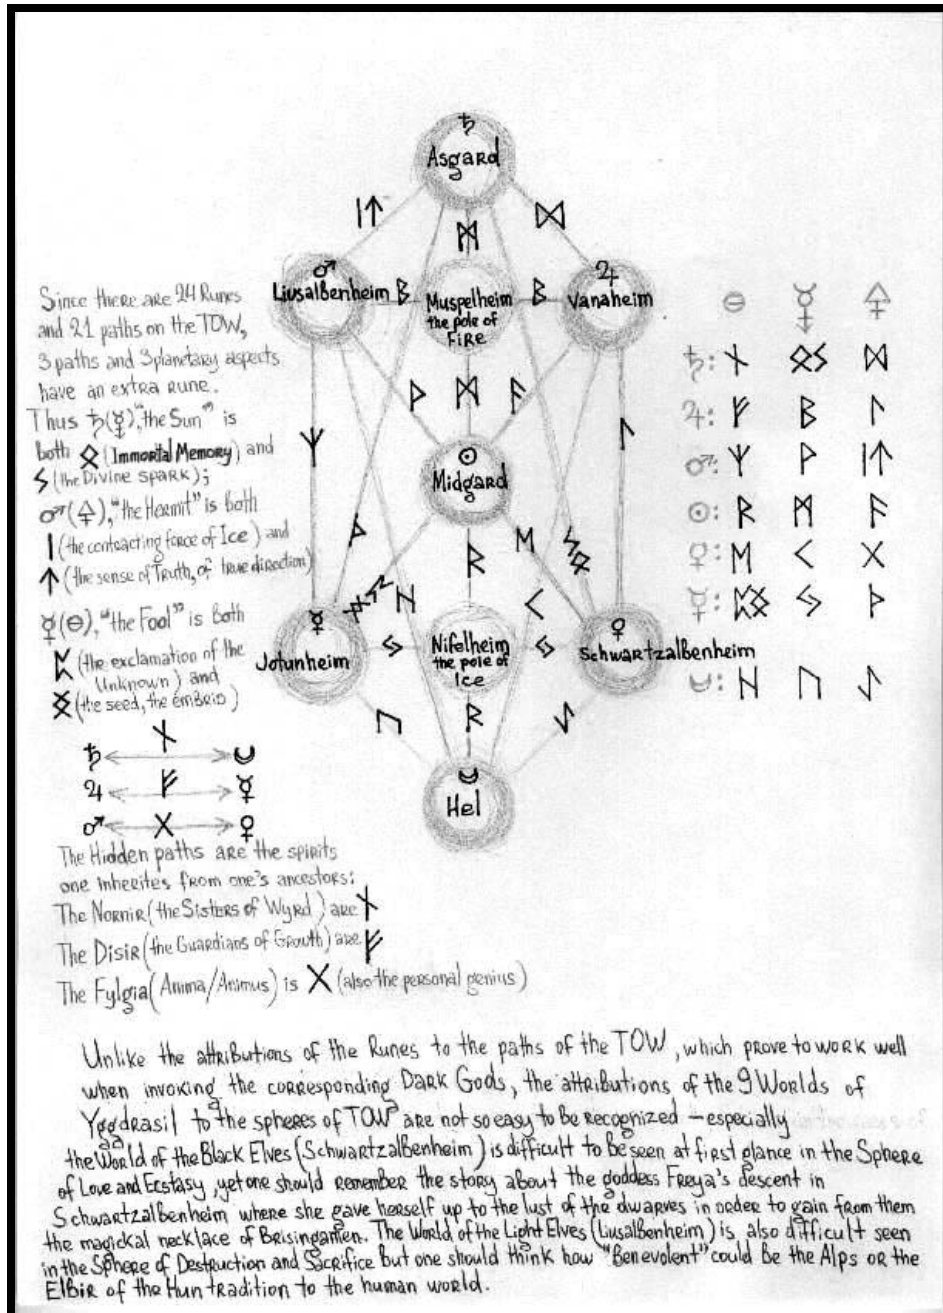 ♄
Asgard
ᛁᛏ
ᛞ
ᛗ
♂
Liusalbenheim
ᛒ
Muspelheim
the pole of
FIRE
ᛒ
♃
Vanaheim
ᚹ
ᛗ
ᚨ
ᛉ
ᛚ
☉
Midgard
ᚦ
ᚱ
ᛖ
ᚺ
ᚲ
☿
Jotunheim
Nifelheim
the pole of
Ice
♀
Schwartzalbenheim
ᚢ
ᚱ
Hel
Since there are 24 Runes
and 21 paths on the TOW,
3 paths and 3 planetary aspects
have an extra rune.
Thus ♄(☿), "the Sun" is
both ᛟ (Immortal Memory) and
ᛊ (the Divine spark);
♂(🜍), "the Hermit" is both
ᛁ (the contracting force of Ice) and
ᛏ (the sense of Truth, of true direction)
☿(⊖), "the Fool" is both
ᛈ (the exclamation of the
Unknown) and
ᛝ (the seed, the embrio)
♄ ᚾ
♃ ᚠ ☿
♂ ᚷ ♀
The Hidden paths are the spirits
one inherites from one's ancestors:
The Nornir (the Sisters of Wyrd) are ᚾ
The Disir (the Guardians of Growth) are ᚠ
The Fylgia (Anima/Animus) is ᚷ (also the personal genius)
⊖ 🜍
♄: ᚾ ᛟᛊ ᛞ
♃: ᚠ ᛒ ᛚ
♂: ᛉ ᚹ ᛁᛏ
☉: ᚱ ᛗ ᚨ
♀: ᛖ ᚲ ᚷ
☿: ᛈᛝ ᛃ ᚦ
: ᚺ ᚢ ᛇ
Unlike the attributions of the Runes to the paths of the TOW, which prove to work well
when invoking the corresponding Dark Gods, the attributions of the 9 Worlds of
Yggdrasil to the spheres of TOW are not so easy to be recognized – especially
the World of the Black Elves (Schwartzalbenheim) is difficult to be seen at first glance in the Sphere
of Love and Ecstasy, yet one should remember the story about the goddess Freya's descent in
Schwartzalbenheim where she gave herself up to the lust of the dwarves in order to gain from them
the magickal necklace of Brisingamen. The World of the Light Elves (Liusalbenheim) is also difficult seen
in the Sphere of Destruction and Sacrifice but one should think how "Benevolent" could be the Alps or the
Elbir of the Hun tradition to the human world.